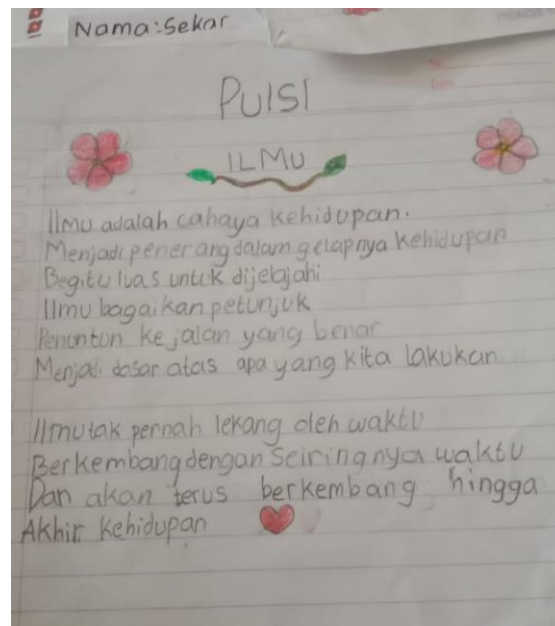 Nama: Sekar
PUISI
ILMU
Ilmu adalah cahaya kehidupan.
Menjadi penerang dalam gelapnya kehidupan
Begitu luas untuk dijelajahi
Ilmu bagaikan petunjuk
Penuntun ke jalan yang benar
Menjadi dasar atas apa yang kita lakukan
Ilmu tak pernah lekang oleh waktu
Berkembang dengan Seiringnya waktu
Dan akan terus berkembang hingga
Akhir kehidupan